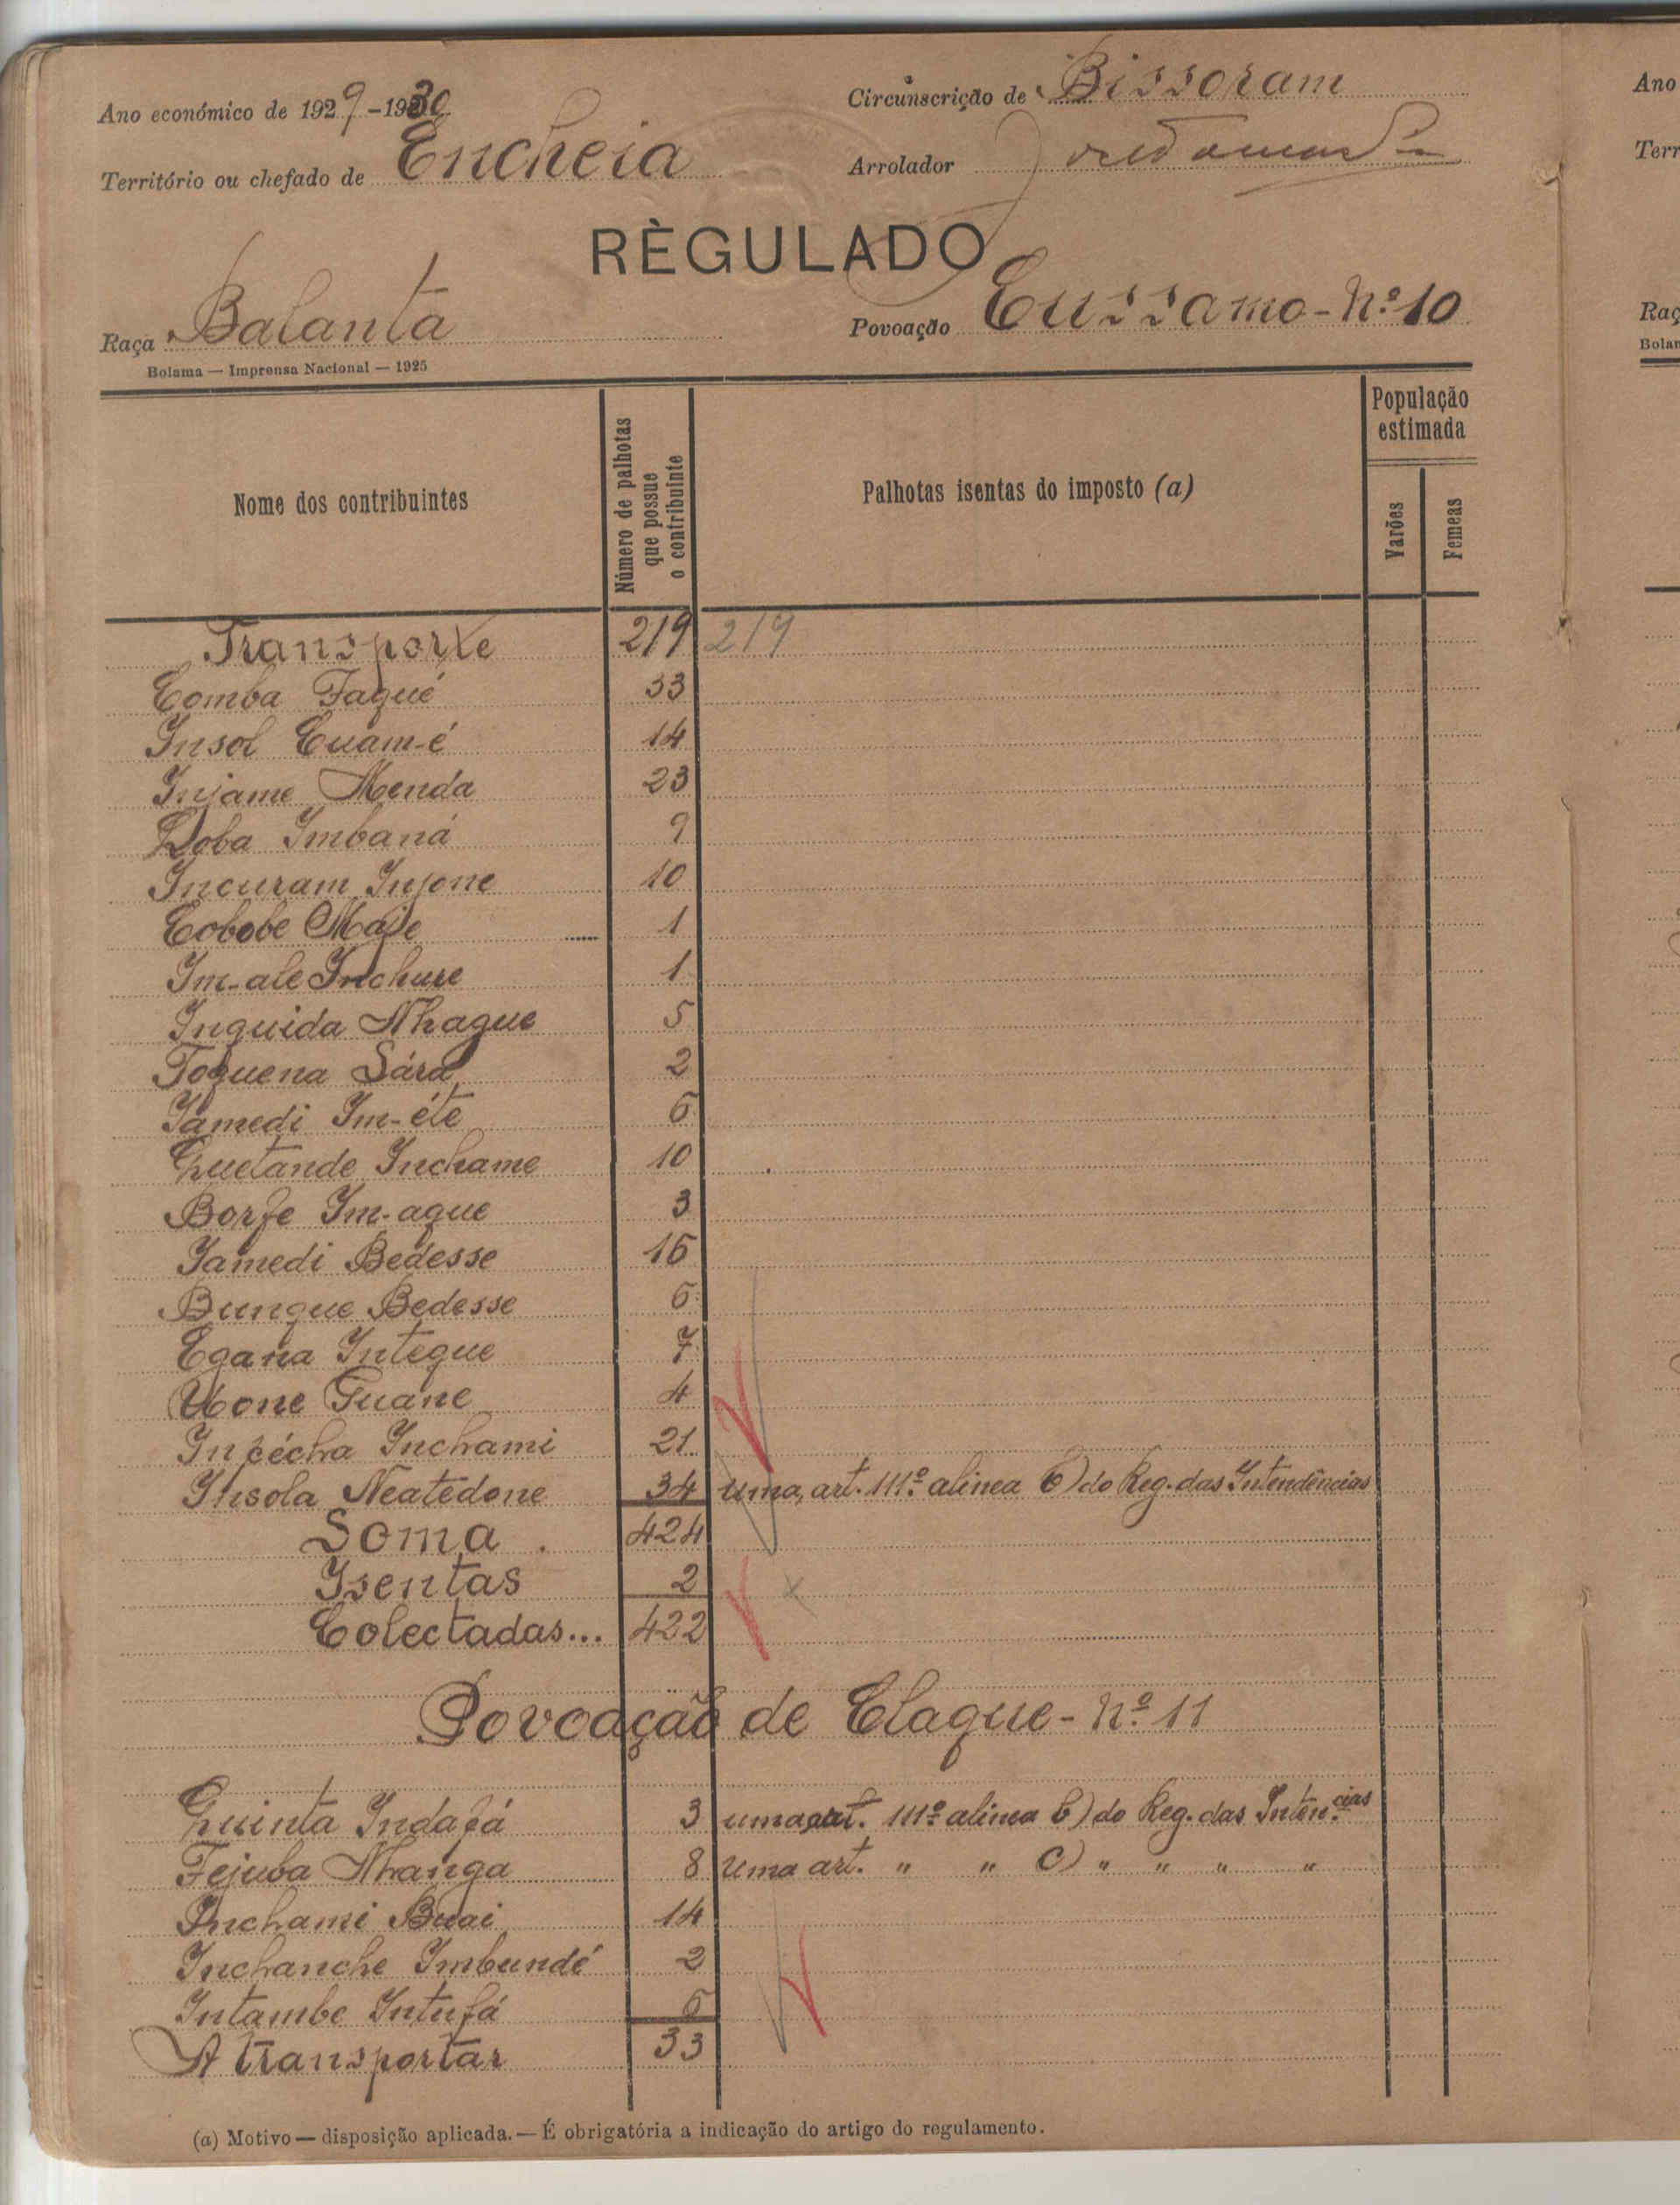 Ano económico de 1929-1930
Circunscrição de Bissoram
Território ou chefado de Encheia
Arrolador
RÈGULADO
Raça Balanta
Povoação Cussamo - Nº 10
Bolama — Imprensa Nacional — 1925
Nome dos contribuintes
Número de palhotas que possue o contribuinte
Palhotas isentas do imposto (a)
População estimada
Varões
Femeas
Transporte 219 219
Comba Faqué 33
Insol Cuam-é 14
Injame Menda 23
Doba Imbaná 9
Incuram Injone 10
Cobobe Maje 1
Im-ale Inchure 1
Inquida Nhague 5
Toquena Sára 2
Iamedi Im-éte 6
Quetande Inchame 10
Borfe Im-aque 3
Iamedi Bedesse 16
Bunque Bedesse 6
Cgana Integue 7
Uone Tuane 4
Inpécha Inchami 21
Insola Neatedone 34 uma, art. 111º alinea b) do Reg. das Intendências
Soma . 424
Isentas 2
Colectadas... 422
Povoação de Claque - Nº 11
Quinta Indafá 3 uma art. 111º alinea b) do Reg. das Inten.cias
Fejuba Nhanga 8 uma art. " " c) " " " "
Inchami Buai 14
Inchanche Imbundé 2
Intambe Intufá 6
A transportar 33
(a) Motivo — disposição aplicada. — É obrigatória a indicação do artigo do regulamento.
Ano
Terr
Raç
Bolam